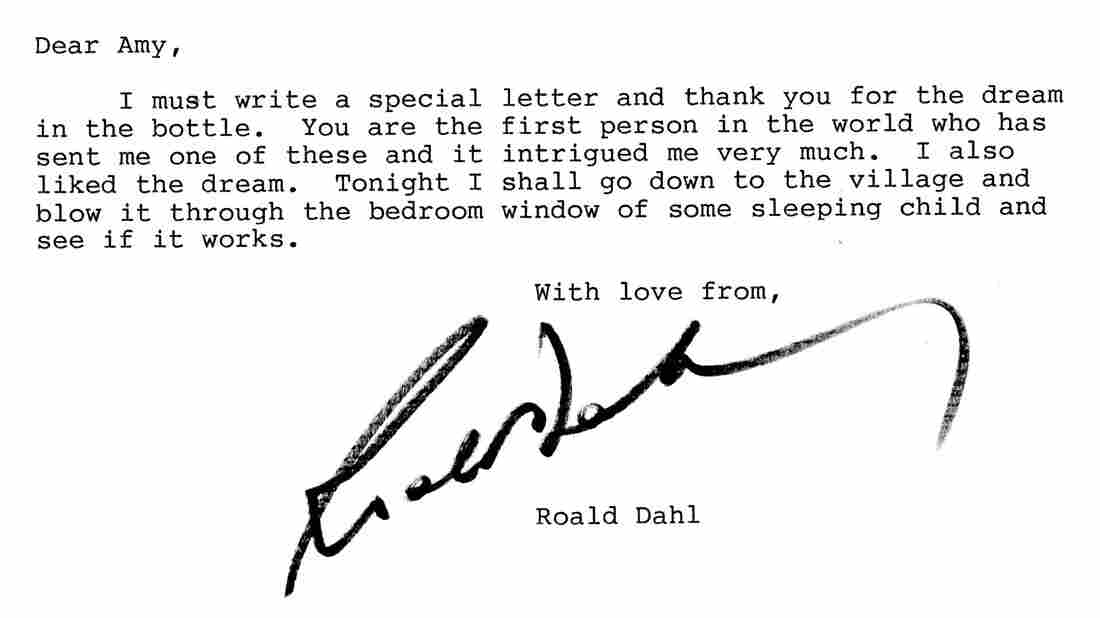 Dear Amy,
I must write a special letter and thank you for the dream
in the bottle. You are the first person in the world who has
sent me one of these and it intrigued me very much. I also
liked the dream. Tonight I shall go down to the village and
blow it through the bedroom window of some sleeping child and
see if it works.
With love from,
Roald Dahl
Roald Dahl